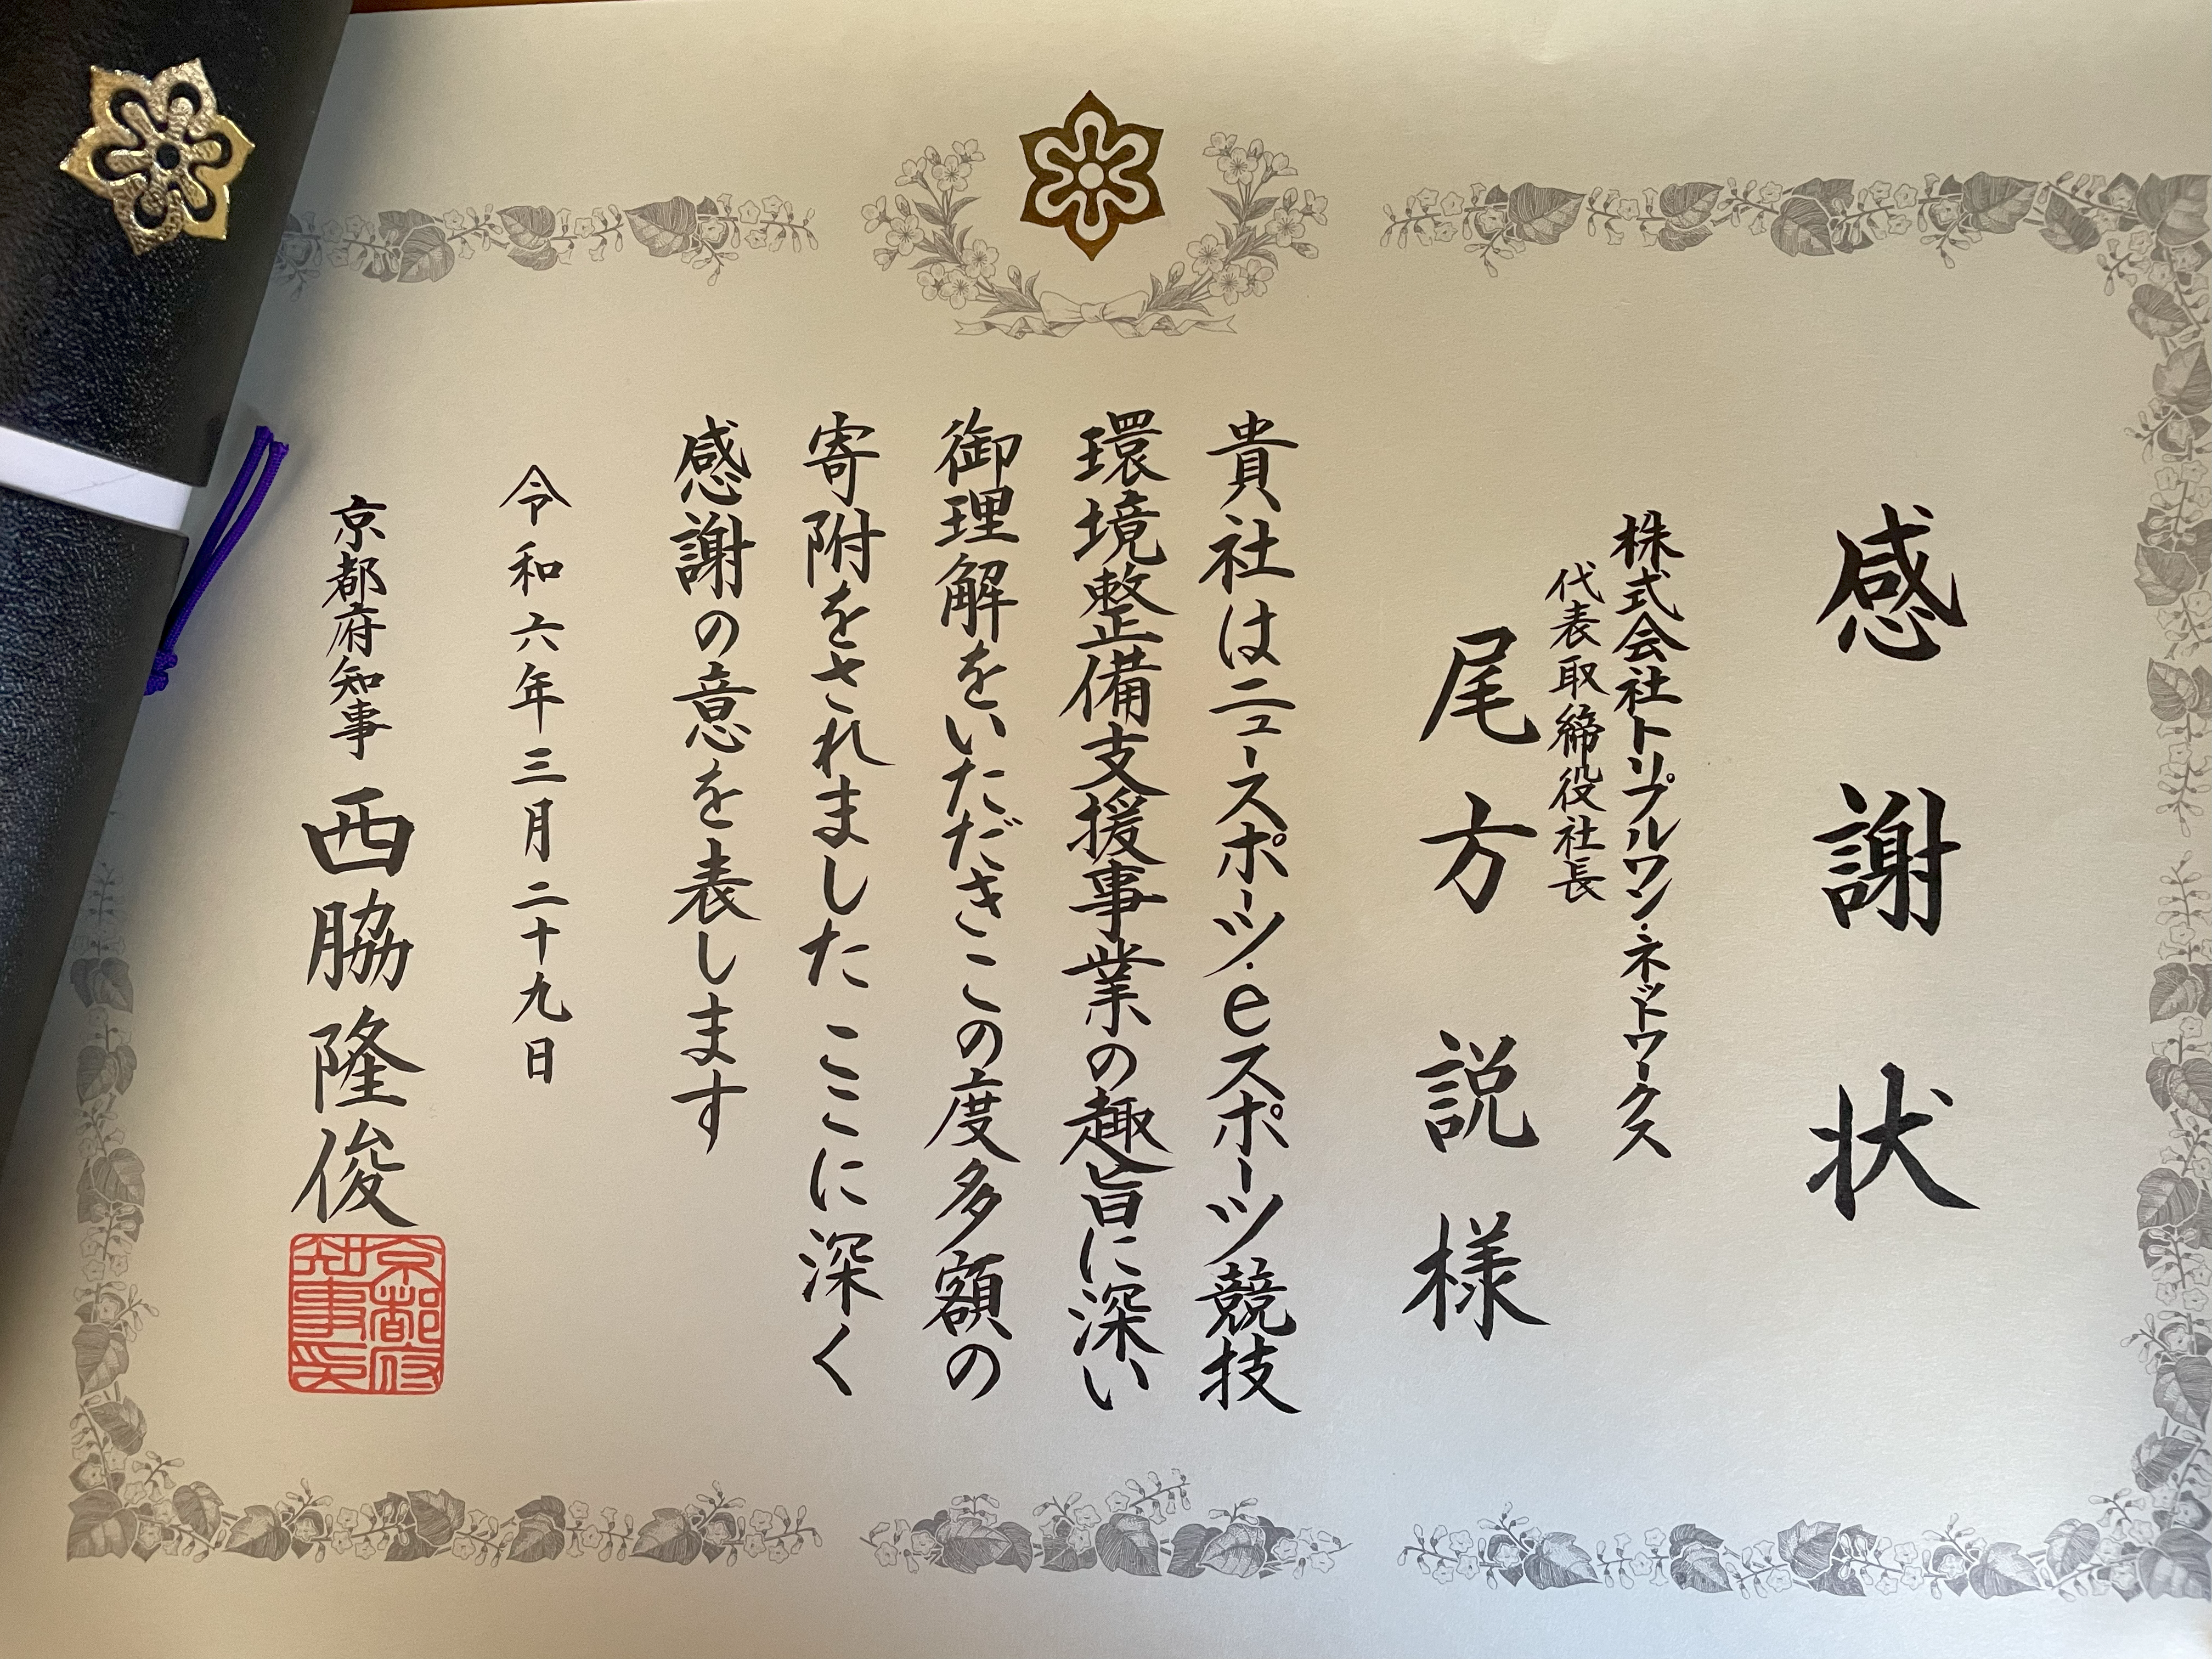 感謝状
株式会社トリプルワン・ネットワークス
代表取締役社長
尾方説様
貴社はニュースポーツ・eスポーツ競技
環境整備支援事業の趣旨に深い
御理解をいただきこの度多額の
寄附をされました ここに深く
感謝の意を表します
令和六年三月二十九日
京都府知事 西脇隆俊
京都府
知事印